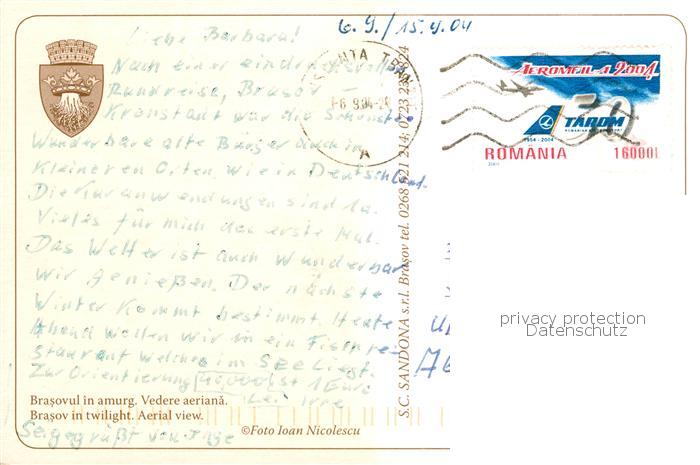 6.9./15.9.04
Liebe Barbara!
Nach einer eindrucksvollen
Rundreise, Brasov –
Kronstadt war die Schönste
Wunderbare alte Bürger auch in
kleineren Orten, wie in Deutschland.
Die Kuranwendungen sind 1a.
Vieles für mich das erste Mal.
Das Wetter ist auch wunderbar
wir genießen. Der nächste
Winter kommt bestimmt. Heute
Abend wollen wir in ein Fischre-
staurant welches im SEE liegt.
Zur Orientierung 40,000 ist 1 Euro
Lei Irre
Sei gegrüßt von Inge
Brașovul în amurg. Vedere aeriană.
Brașov in twilight. Aerial view.
©Foto Ioan Nicolescu
S.C. SANDONA s.r.l. Brașov tel. 0268 521 214; 0723
-6 9.04-20
A
AEROMFILA 2004
50
TAROM
1954 - 2004
ROMÂNIA 16000L
2004
privacy protection
Datenschutz